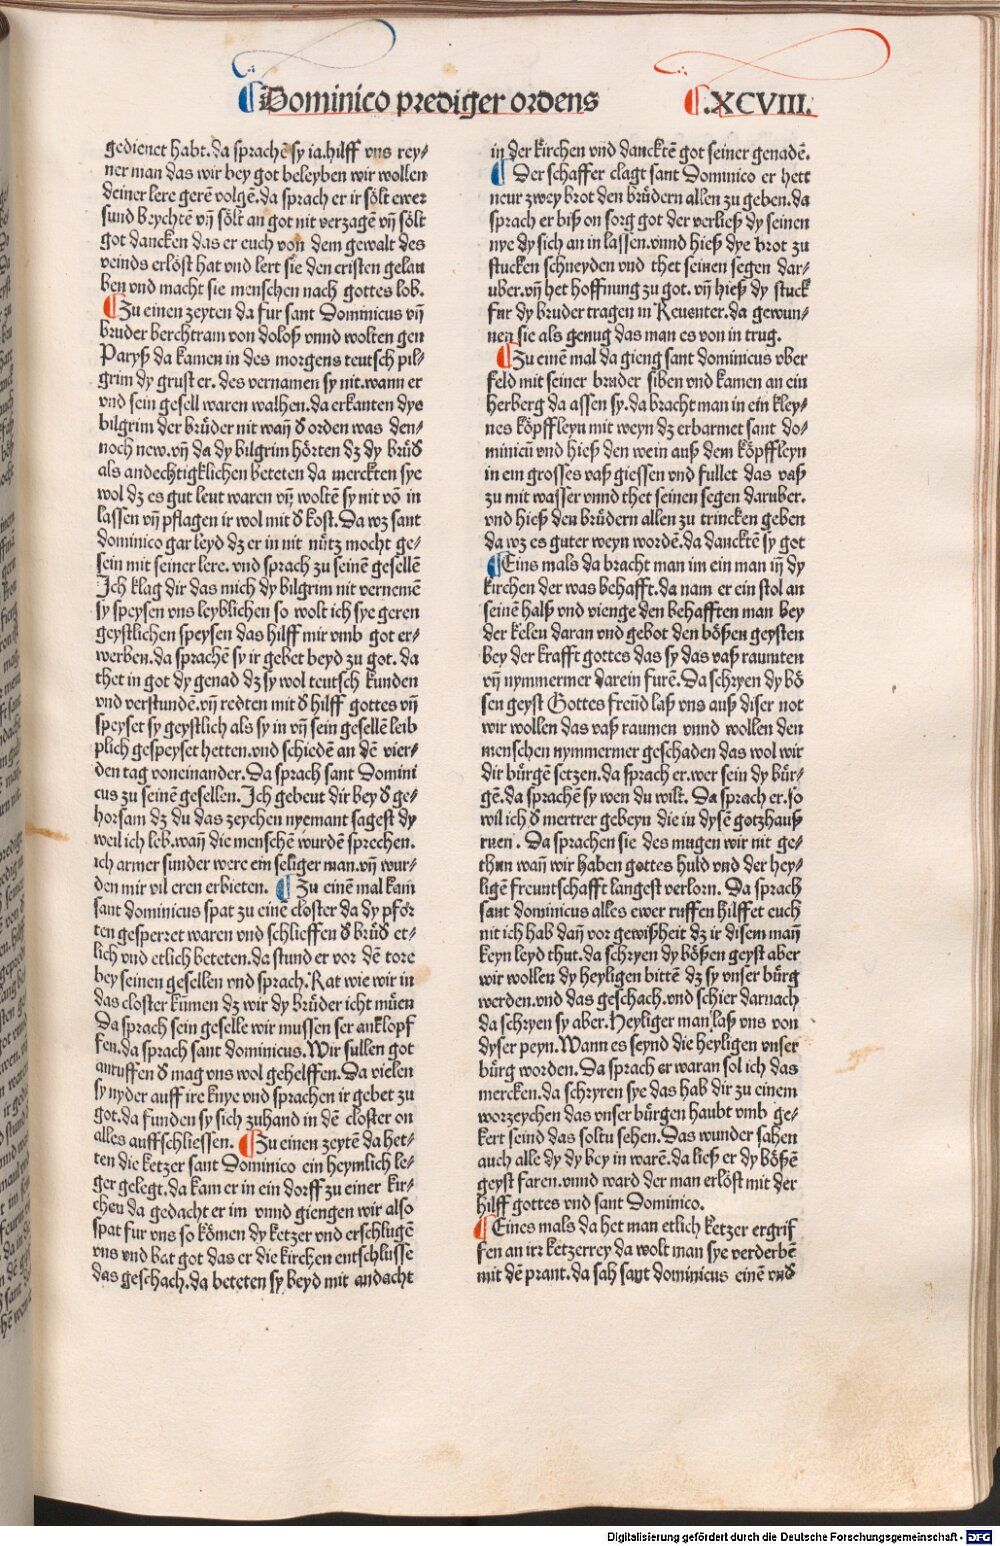 Dominico prediger ordens .XCVIII.
gedienet habt.da sprachē sy ia.hilff vns rey⸗
ner man das wir bey got beleyben wir wollen
deiner lere gerē volgē.da sprach er ir sölt ewer
sund beychtē vn̄ sölt an got nit verzagē vn̄ sölt
got dancken das er euch von dem gewalt des
veinds erlöst hat vnd lert sie den cristen gelau
ben vnd macht sie menschen nach gottes lob.
Zu einen zeyten da fur sant Dominicus vn̄
bruder berchtram von dolosz vnnd wolten gen
Parysz da kamen in des morgens teutsch pil⸗
grim dy grust er. des vernamen sy nit.wann er
vnd sein gesell waren walhen.da erkanten dye
bilgrim der brüder nit wan̄ d̕ orden was den⸗
noch new.vn̄ da dy bilgrim hörten dz dy brüd̕
als andechtigklichen beteten da merckten sye
wol dz es gut leut waren vn̄ woltē sy nit vō in
lassen vn̄ pflagen ir wol mit d̕ kost. Da wz sant
dominico gar leyd dz er in nit nütz mocht ge⸗
sein mit seiner lere. vnd sprach zu seinē gesellē
Ich klag dir das mich dy bilgrim nit vernemē
sy speysen vns leyblichen so wolt ich sye geren
geystlichen speysen das hilff mir vmb got er⸗
werben.da sprachē sy ir gebet beyd zu got. da
thet in got dy genad dz sy wol teutsch kunden
vnd verstundē.vn̄ redten mit d̕ hilff gottes vn̄
speyset sy geystlich als sy in vn̄ sein gesellē leib
plich gespeyset hetten.vnd schiedē an dē vier⸗
den tag voneinander.Da sprach sant Domini
cus zu seinē gesellen.Ich gebeut dir bey d̕ ge⸗
horsam dz du das zeychen nyemant sagest dy
weil ich leb.wan̄ die menschē wurdē sprechen.
ich armer sunder were ein seliger man.vn̄ wur⸗
den mir vil eren erbieten. Zu einē mal kam
sant dominicus spat zu eine closter da dy pför
ten gesperret waren vnd schlieffen d̕ brüd̕ et⸗
lich vnd etlich beteten.da stund er vor dē tore
bey seinen gesellen vnd sprach.Rat wie wir in
das closter kūmen dz wir dy brüder icht müen
Da sprach sein geselle wir mussen ser anklopf
fen.da sprach sant dominicus.Wir sullen got
anruffen d̕ mag vns wol gehelffen.Da vielen
sy nyder auff ire knye vnd sprachen ir gebet zu
got.da funden sy sich zuhand in dē closter on
alles auffschliessen. Zu einen zeytē da het⸗
ten die ketzer sant Dominico ein heymlich le⸗
ger gelegt.da kam er in ein dorff zu einer kir⸗
chen da gedacht er im vnnd giengen wir also
spat fur vns so kömen dy ketzer vnd erschlugē
vns vnd bat got das er die kirchen entschlusse
das geschach.da beteten sy beyd mit andacht
in der kirchen vnd danckte got seiner genadē.
Der schaffer clagt sant Dominico er hett
neur zwey brot den brüdern allen zu geben.da
sprach er bisz on sorg got der verliesz dy seinen
nye dy sich an in lassen.vnnd hiesz dye brot zu
stucken schneyden vnd thet seinen segen dar⸗
uber.vn̄ het hoffnung zu got. vn̄ hiesz dy stuck
fur dy bruder tragen in Reuenter.da gewun⸗
nen sie als genug das man es von in trug.
Zu einē mal da gieng sant dominicus vber
feld mit seiner bruder siben vnd kamen an ein
herberg da assen sy.da bracht man in ein kley⸗
nes köpffleyn mit weyn dz erbarmet sant do⸗
minicū vnd hiesz den wein ausz dem köpffleyn
in ein grosses vasz giessen vnd fullet das vasz
zu mit wasser vnnd thet seinen segen daruber.
vnd hiesz den brüdern allen zu trincken geben
da wz es guter weyn wordē.da dancktē sy got
Eins mals da bracht man im ein man in̄ dy
kirchen der was behafft.da nam er ein stol an
seinē halsz vnd vienge den behafften man bey
der kelen daran vnd gebot den böszen geysten
bey der krafft gottes das sy das vasz raumten
vn̄ nymmermer darein furē.Da schryen dy bö
sen geyst Gottes freūd lasz vns ausz diser not
wir wollen das vasz raumen vnnd wollen den
menschen nymmermer geschaden das wol wir
dir bürgē setzen.da sprach er.wer sein dy bür⸗
gē.da sprachē sy wen du wilt. Da sprach er.so
wil ich d̕ mertrer gebeyn die in dysē gotzhausz
ruen. Da sprachen sie des mugen wir nit ge⸗
thun wan̄ wir haben gottes huld vnd der hey⸗
ligē freuntschafft langest verlorn. Da sprach
sant dominicus alles ewer ruffen hilffet euch
nit ich hab dan̄ vor gewiszheit dz ir disem man̄
keyn leyd thut.da schryen dy böszen geyst aber
wir wollen dy heyligen bittē dz sy vnser bürg
werden.vnd das geschach.vnd schier darnach
da schryen sy aber.Heyliger man lasz vns von
dyser peyn.Wann es seynd die heyligen vnser
bürg worden. Da sprach er waran sol ich das
mercken.da schryren sye das hab dir zu einem
worzeychen das vnser bürgen haubt vmb ge⸗
kert seind das soltu sehen.Das wunder sahen
auch alle dy dy bey in warē.da liesz er dy böszē
geyst faren.vnnd ward der man erlöst mit der
hilff gottes vnd sant Dominico.
Eines mals da het man etlich ketzer ergrif
fen an irr ketzerrey da wolt man sye verderbē
mit dē prant.da sah sant dominicus einē vnd̕
Digitalisierung gefördert durch die Deutsche Forschungsgemeinschaft - DFG